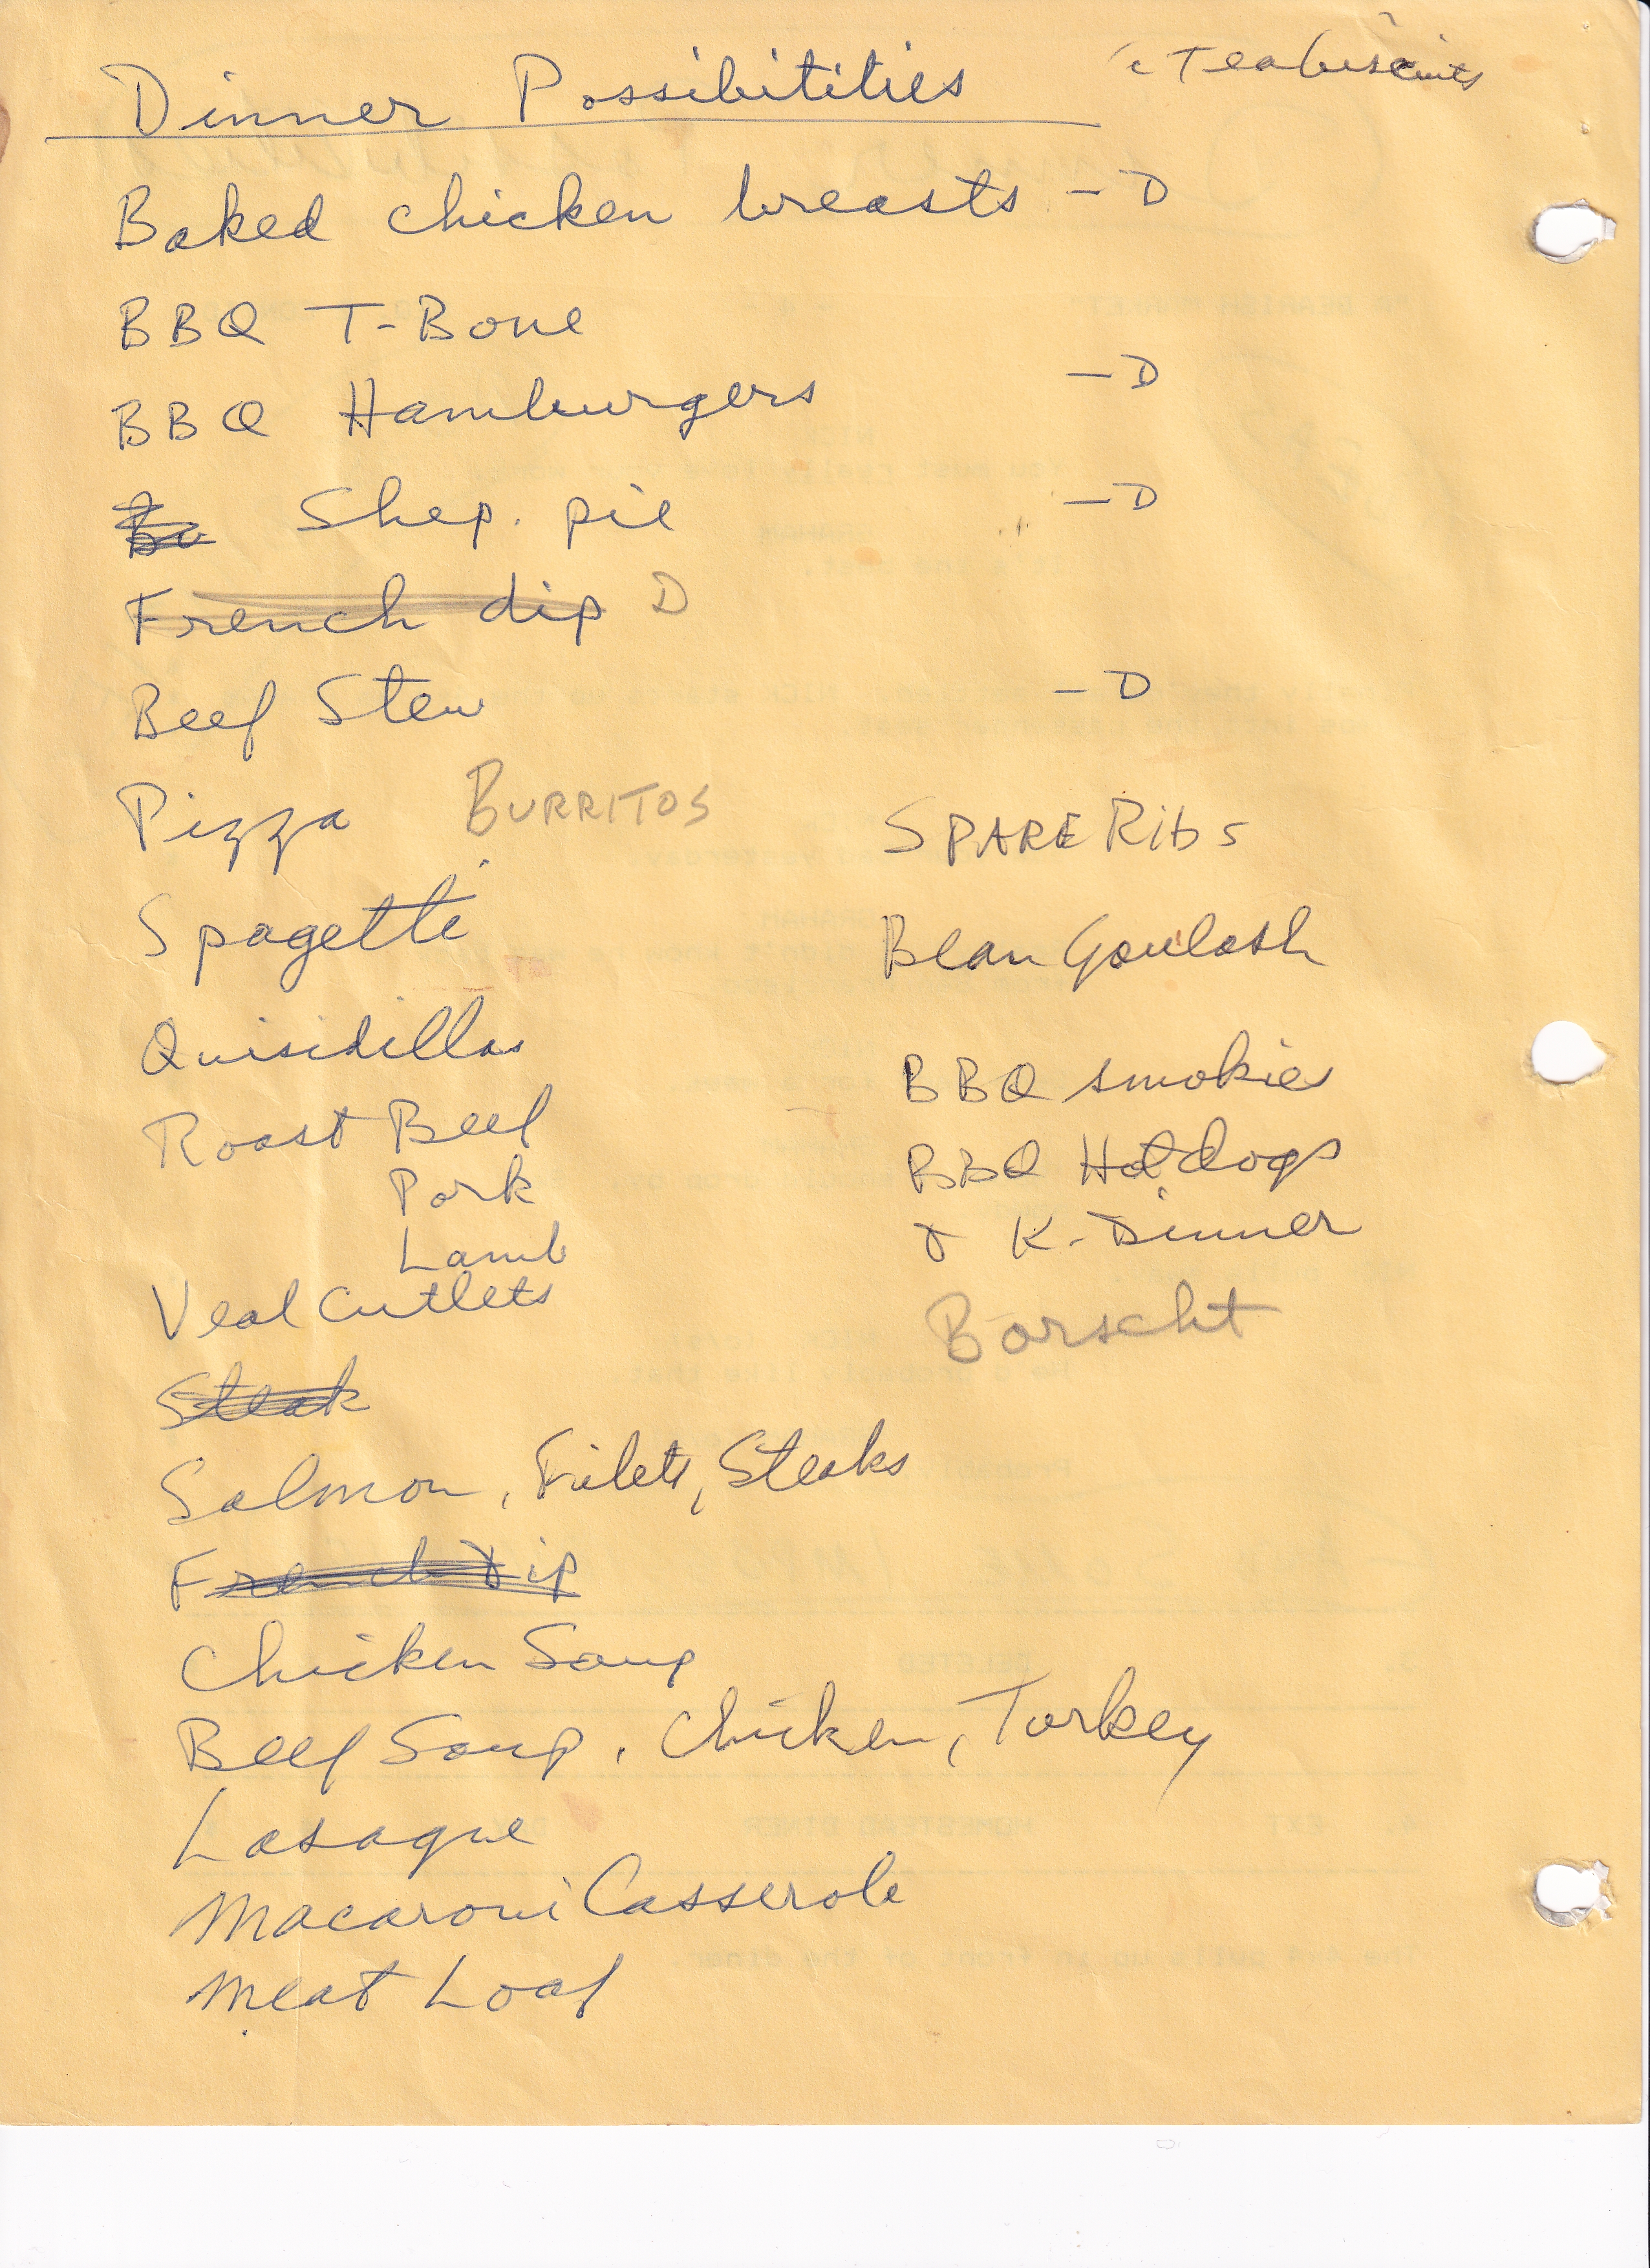 Dinner Possibitities
Teabiscuits
Baked chicken breasts - D
BBQ T-Bone
BBQ Hamburgers - D
Shep. pie - D
French dip D
Beef Stew - D
Pizza BURRITOS
Spagetti
Quisidillas
Roast Beef
Pork
Lamb
Veal Cutlets
Steak
Salmon, Filets, Steaks
French Dip
Chicken Soup
Beef Soup, Chicken, Turkey
Lasagne
Macaroni Casserole
Meat Loaf
SPARE Ribs
Bean Goulash
BBQ smokies
BBQ Hotdogs
& K-Dinner
Borscht